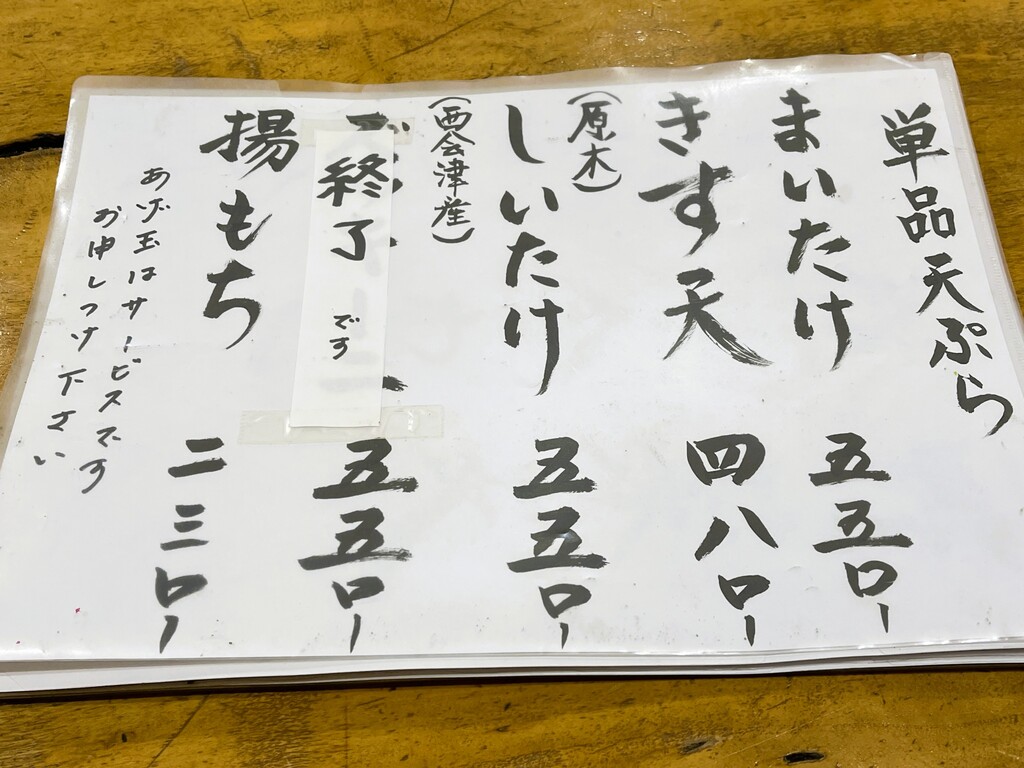 単品天ぷら
まいたけ 五五〇ー
きす天 四八〇ー
(原木)
しいたけ 五五〇ー
(西会津産)
終了です
五五〇ー
揚もち 二三〇ー
あげ玉はサービスです
お申しつけ下さい